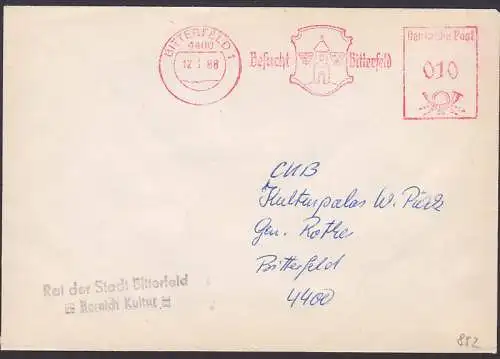 BITTERFELD 1
4400
12.1.88
Besucht Bitterfeld
Deutsche Post
010
CKB
Kulturpalas W. Pieck
Gen. Rothe
Bitterfeld
4400
Rat der Stadt Bitterfeld
Bereich Kultur
882